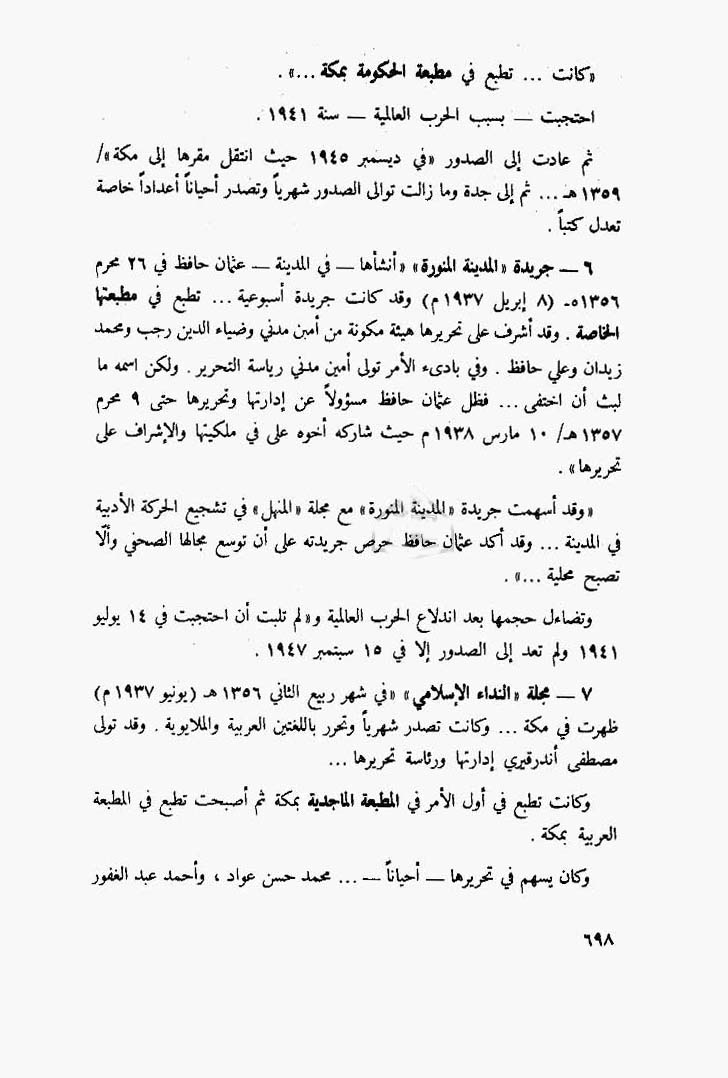 «كانت ... تطبع في مطبعة الحكومة بمكة ...» .
احتجبت — بسبب الحرب العالمية — سنة ١٩٤١ .
ثم عادت إلى الصدور «في ديسمبر ١٩٤٥ حيث انتقل مقرها إلى مكة»/
١٣٥٩ هـ ... ثم إلى جدة وما زالت توالى الصدور شهرياً وتصدر أحياناً أعداداً خاصة
تعدل كتباً .
٦ — جريدة «المدينة المنورة» «أنشأها — في المدينة — عثمان حافظ في ٢٦ محرم
١٣٥٦هـ (٨ إبريل ١٩٣٧ م) وقد كانت جريدة أسبوعية ... تطبع في مطبعتها
الخاصة . وقد أشرف على تحريرها هيئة مكونة من أمين مدني وضياء الدين رجب ومحمد
زيدان وعلي حافظ . وفي بادىء الأمر تولى أمين مدني رياسة التحرير . ولكن اسمه ما
لبث أن اختفى ... فظل عثمان حافظ مسؤولاً عن إدارتها وتحريرها حتى ٩ محرم
١٣٥٧ هـ/ ١٠ مارس ١٩٣٨ م حيث شاركه أخوه على في ملكيتها والإشراف على
تحريرها» .
«وقد أسهمت جريدة «المدينة المنورة» مع مجلة «المنهل» في تشجيع الحركة الأدبية
في المدينة ... وقد أكد عثمان حافظ حرص جريدته على أن توسع مجالها الصحفي وألّا
تصبح محلية ...» .
وتضاءل حجمها بعد اندلاع الحرب العالمية و«لم تلبث أن احتجبت في ١٤ يوليو
١٩٤١ ولم تعد إلى الصدور إلا في ١٥ سبتمبر ١٩٤٧ .
٧ — مجلة «النداء الإسلامي» «في شهر ربيع الثاني ١٣٥٦ هـ (يونيو ١٩٣٧ م)
ظهرت في مكة ... وكانت تصدر شهرياً وتحرر باللغتين العربية والملايوية . وقد تولى
مصطفى أندرقيري إدارتها ورئاسة تحريرها ...
وكانت تطبع في أول الأمر في المطبعة الماجدية بمكة ثم أصبحت تطبع في المطبعة
العربية بمكة .
وكان يسهم في تحريرها — أحياناً — ... محمد حسن عواد ، وأحمد عبد الغفور
٦٩٨